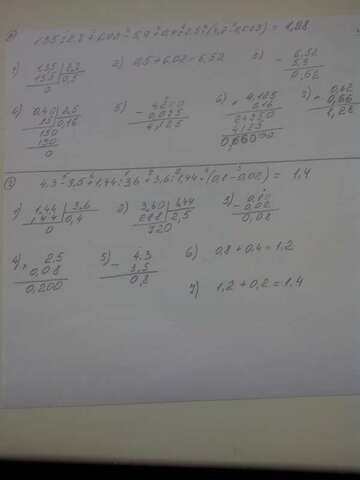 1,35 : 2,7 + 6,02 - 5,9 + 0,4 : 2,5 · (4,2 - 0,075) = 1,28
1) 1,35 2,7 2) 0,5 + 6,02 = 6,52 3) - 6,52
135 0,5 5,9
0 0,62
4) 0,40 2,5 5) - 4,200 6) × 4,125 7) + 0,62
0,16 0,075 0,16 0,66
150 4,125 24750 1,28
150 4125
0 0,66000
4,3 - 3,5 + 1,44 : 3,6 + 3,6 : 1,44 · (0,1 - 0,02) = 1,4
1) 1,44 3,6 2) 3,60 1,44 3) - 0,10
144 0,4 288 2,5 0,02
0 720 0,08
4) × 2,5 5) - 4,3 6) 0,8 + 0,4 = 1,2
0,08 3,5
0,200 0,8 7) 1,2 + 0,2 = 1,4